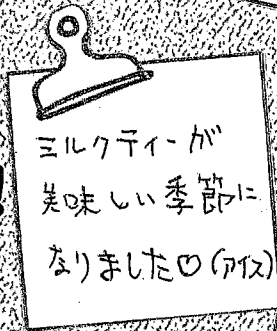 ミルクティーが
美味しい季節に
なりました♡(アイス)